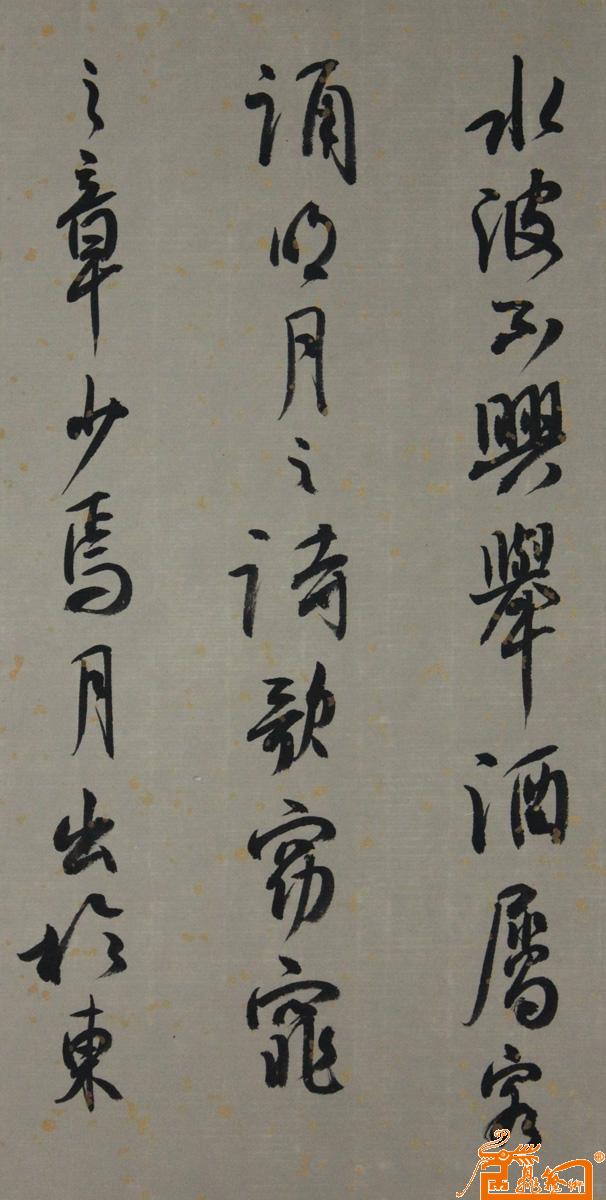 水波不興舉酒屬客
誦明月之詩歌窈窕
之章少焉月出於東